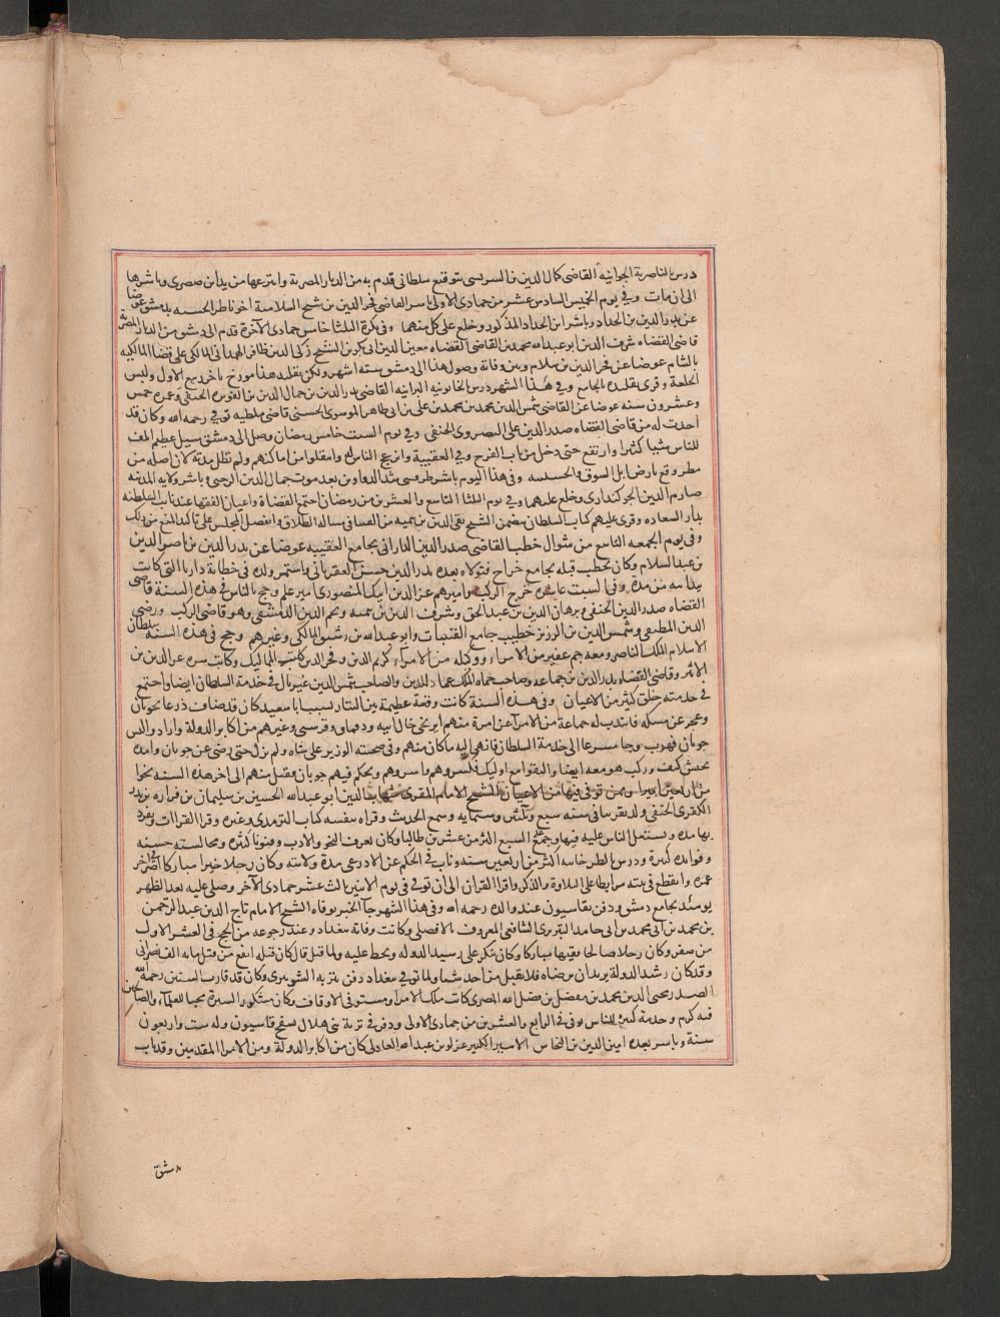 درس بالناصرية الجوانيه القاضي كمال الدين بن الشريشي بتوقيع سلطاني قدم به من الديار المصرية وانتزعها من يد ابن صصرى وباشرها
الى ان مات وفي يوم الخميس السادس عشر من جمادى الاولى باشر القاضي فخر الدين بن شيخ السلامية اخو ناظر الجيش الحسبه بدمشق عوضا
عن بدر الدين بن الحداد وباشر ابن الحداد المذكور وخلع على كل منهما وفي بكرة الثلثا خامس جمادى الآخرة قدم الى دمشق من الديار المصرية
قاضي القضاه شرف الدين ابو عبد الله محمد بن القاضي القضاه معين الدين ابي بكر بن الشيخ زكي الدين ظافر الهمداني المالكي على قضا المالكيه
بالشام عوضا عن فخر الدين بن سلام وبين وفاته وصول هذا الى دمشق سته اشهر ولكن تقليد هذا مورخ باخر ربيع الاول ولبس
الخلعة وقرئ تقليده بالجامع وفي هذا الشهر درس الخاتونيه البرانيه القاضي بدر الدين بن جمال الدين بن الفويره الحنفي وعمره خمس
وعشرون سنه عوضا عن القاضي شمس الدين محمد بن محمد بن علي بن ابي طاهر الموسوي الحسني قاضي ملطيه توفي رحمه الله وكان قد
اخذت له من قاضي القضاه صدر الدين علي البصروي الحنفي وفي يوم السبت خامس رمضان وصل الى دمشق سيل عظيم اتلف
للناس شيا كثيرا وارتفع حتى دخل من باب الفرج وفي العقيبة وانزعج الناس له وانتقلوا من اماكنهم ولم تطل مدته لان اصله من
مطر وقع بارض ابل السوق والحسنيه وفي هذا اليوم باشر طرقشي شد الدواوين بعد موت جمال الدين الرحبي وباشر ولايه المدينه
صارم الدين الجوكنداري وخلع عليهما وفي يوم الثلثا التاسع والعشرين من رمضان اجتمع القضاة واعيان الفقها عند نايب السلطنه
بدار السعاده وقرئ عليهم كتاب السلطان مضمن الشيخ تقي الدين بن تيميه من الفتيا في مسالة الطلاق وانفصل المجلس على تاكيد المنع من ذلك
وفي يوم الجمعه التاسع من شوال خطب القاضي صدر الدين الداراني بجامع العقيبه عوضا عن بدر الدين بن ناصر الدين
بن عبد السلام وكان يخطب قبله بجامع جراح فتولاه بعده بدر الدين حسن العقرباني واستمر ولده في خطابة داريا التي كانت
بيد ابيه من مدة وفي السبت عاشره خرج الركب واميرهم عز الدين ايبك المنصوري امير علم وحج بالناس في هذه السنة قاضي
القضاه صدر الدين الحنفي وبرهان الدين بن عبد الحق وشرف الدين بن تيميه ونجم الدين الدمشقي وهو قاضي الركب ورضي
الدين المنطيقي وشمس الدين بن الوزير خطيب جامع القبيبات وابو عبد الله بن رشيق المالكي وغيرهم وحج في هذه السنه سلطان
الاسلام الملك الناصر ومعه جم غفير من الامراء ووكيله من الامراء كريم الدين وفخر الدين كاتب المماليك وكاتب سره عز الدين بن
الاثير وقاضي القضاه بدر الدين بن جماعه وصاحب حماه الملك عماد الدين والصاحب شمس الدين غبريال في خدمة السلطان ايضا واجتمع
في خدمته خلق كثير من الاعيان وفي هذه السنة كانت وقعة عظيمة بين التتار بسبب ابا سعيد كان قد ضاق ذرعا بجوبان
وعجز عن مسكه فانتدب له جماعة من الامرا عن امره منهم ايرنجي خال ابيه ودقماق وقرمشي وغيرهم من اكابر الدولة وارادوا كبس
جوبان فهرب وجا مسرعا الى خدمة السلطان فانهى اليه ما كان منهم وفي صحبته الوزير علي شاه ولم يزل حتى رضي عن جوبان وامده
بجيش كثيف وركب هو معه ايضا والتقوا مع اوليك فكسروهم واسروهم وتحكم فيهم جوبان فقتل منهم الى اخر هذه السنه نحوا
من اربعين اميرا وممن توفي فيها من الاعيان الشيخ الامام المقرئ شهاب الدين ابو عبد الله الحسين بن سليمان بن فزاره بن بدر
الكفري الحنفي ولد تقريبا في سنه سبع وثلثين وستمايه وسمع الحديث وقراه بنفسه كتاب الترمذي وغيره وقرا القراات وتفرد
بها مده ويشتغل الناس عليه فيها وجمع عليه السبع اكثر من عشرين طالبا وكان يعرف النحو والادب وفنونا كثيرة ومجالسته حسنه
وفوايده كثيرة ودرس بالطرخانيه اكثر من اربعين سنه وناب في الحكم عن الاذرعي مدة ولايته وكان رجلا خيرا مباركا اضر في اخر
عمره وانقطع في بيته مرابطا على التلاوة والذكر واقرا القران الى ان توفي في يوم الاثنين ثالث عشر جمادى الآخر وصلي عليه بعد الظهر
يومئذ بجامع دمشق ودفن بقاسيون عند والده رحمه الله وفي هذا الشهر جا الخبر بوفاة الشيخ الامام تاج الدين عبد الرحمن
بن محمد بن ابي محمد بن ابي حامد التبريزي الشافعي المعروف بالافضلي وكانت وفاته ببغداد وعند رجوعه من الحج في العشر الاول
من صفر وكان رجلا صالحا فقيها مباركا وكان ينكر على رسيد الدوله ويحط عليه ولما قتل قال كان قتله انفع من قتل مايه الف نصراني
وقد كان رشيد الدولة يريد ان يرضاه فلا يقبل من احد شيا ولما توفي ببغداد دفن بتربة الشونيزي وكان قد قارب الستين رحمه الله
الصدر محيي الدين محمد بن مفضل بن فضل الله المصري كاتب ملك الامرا ومستوفي الاوقاف وكان مشكور السيرة محبا للعلماء والصالحين
فيه كرم وخدمة كبيرة للناس توفي في الرابع والعشرين من جمادى الاولى ودفن في تربة بني هلال بسفح قاسيون وله ست واربعون
سنة وباشر بعده امين الدين بن النحاس الامير الكبير غرلو بن عبد الله العادلي كان من اكابر الدولة ومن الامرا المقدمين وقد ناب
دمشق